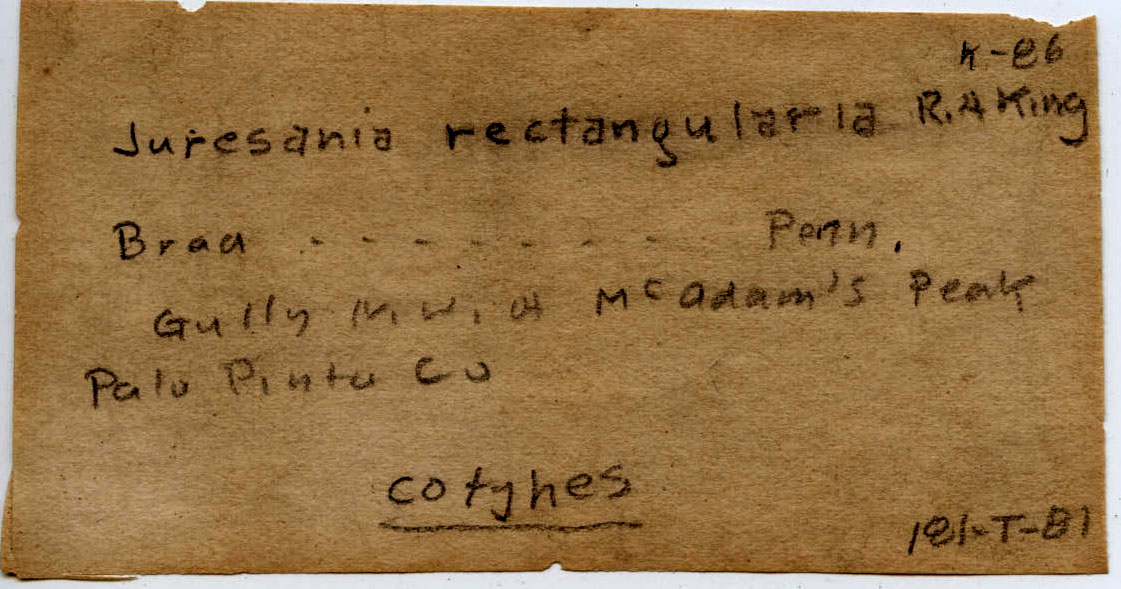 K-86
Juresania rectangularia R.A King
Brad - - - - - - - - Penn.
Gully N.W. of McAdam's Peak
Palo Pinto Co
cotyhes
181-T-81